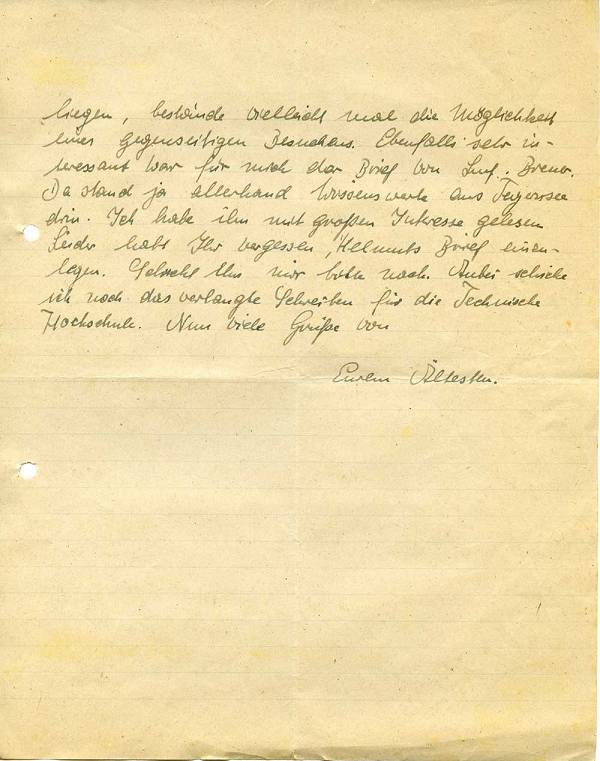 liegen, bestünde vielleicht mal die Möglichkeit
eines gegenseitigen Besuches. Ebenfalls sehr in-
teressant war für mich der Brief von
Da stand ja allerhand Wissenswerte aus Tegernsee
drin. Ich habe ihn mit großem Interesse gelesen
Leider habt Ihr vergessen, Helmuts Brief einzu-
legen. Schickt Ihn mir bitte nach. Anbei schicke
ich noch das verlangte Schreiben für die Technische
Hochschule. Nun viele Grüße von
Eurem Ältesten.